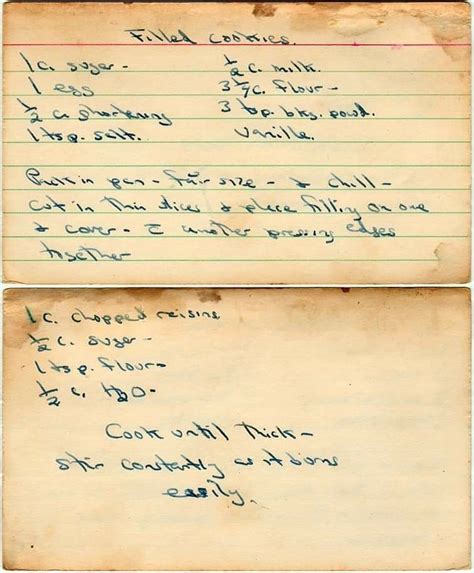 Filled Cookies.
1 c. suger -
1 egg
1/2 c. shortening
1 tsp. salt.
1/2 c. milk.
3 1/2 c. flour -
3 tsp. bkg. powd.
Vanilla.
Put in pan - fair size - & chill -
cut in thin slices & place filling on one
& cover - c̄ another pressing edges
together
1 c. chopped raisins
1/2 c. suger -
1 tsp. flour -
1/2 c. H2O -
Cook until thick -
stir constantly as it burns
easily.